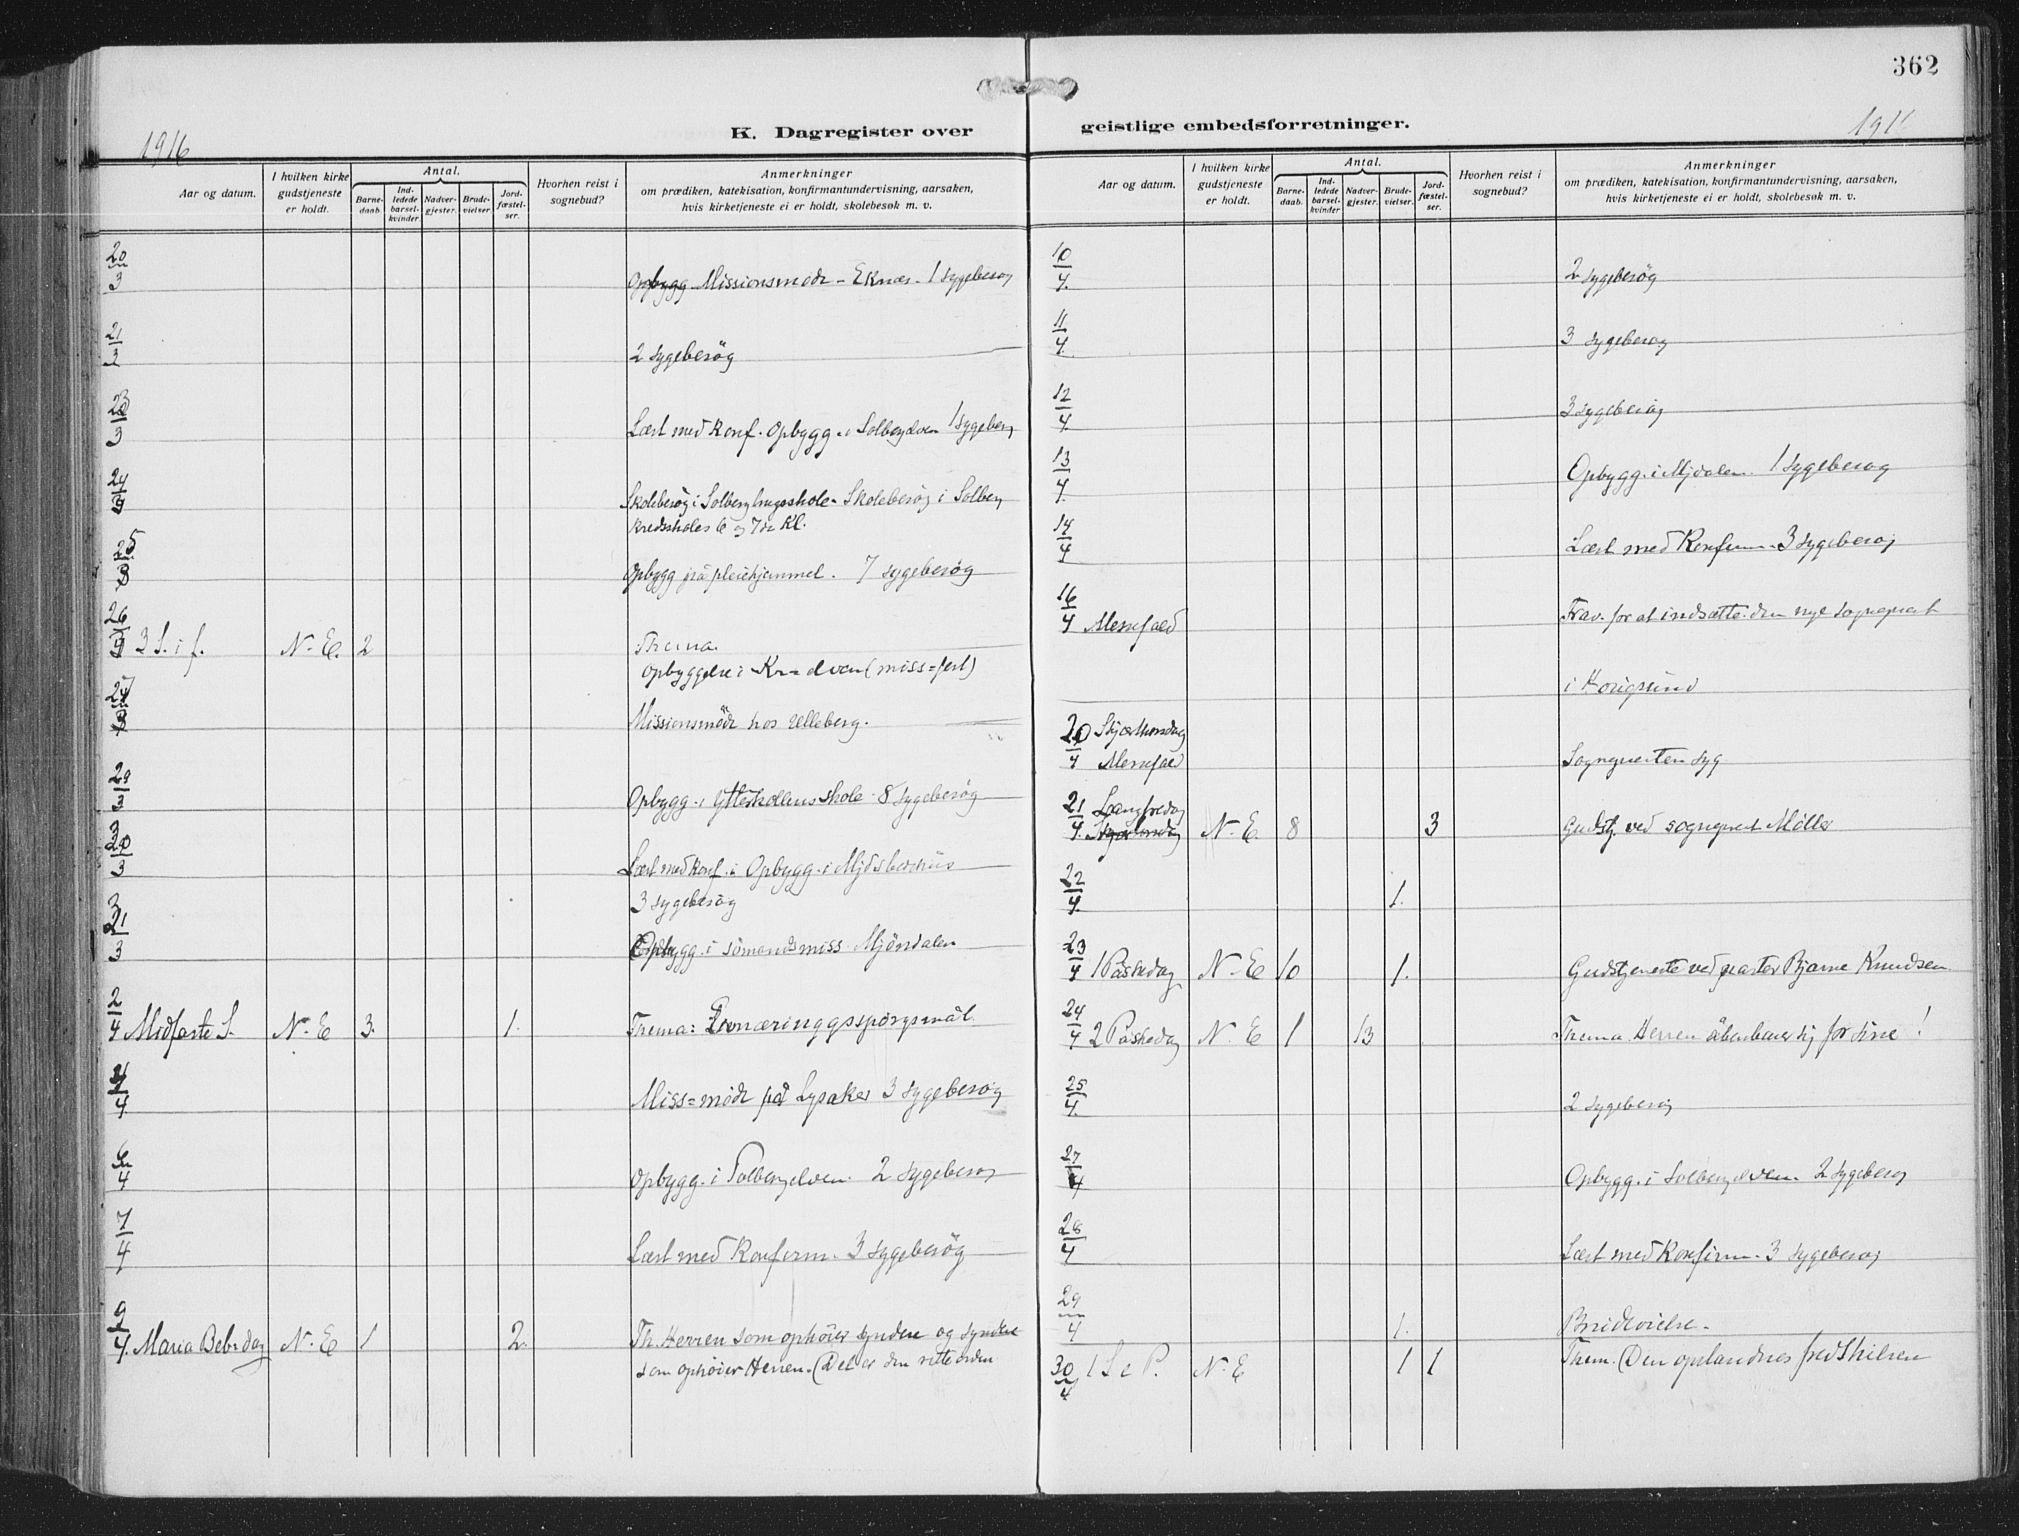 362
1916
K. Dagregister over
geistlige embedsforretninger.
191
Aar og datum.
I hvilken kirke gudstjeneste er holdt.
Antal.
Barne-daab.
Ind-ledede barsel-kvinder.
Nadver-gjester.
Brude-vielser.
Jord-fæstel-ser.
Hvorhen reist i sognebud?
Anmerkninger
om prædiken, katekisation, konfirmantundervisning, aarsaken,
hvis kirketjeneste ei er holdt, skolebesøk m. v.
20/3 Missionsmøde - Eknæs - 1 sygebesøg
21/3 2 sygebesøg
23/3 Læst med Konf. Opbygg. i Solbergelven 1 sygebesøg
24/3 Skolebesøg i Solberg Skolebesøg i Solberg
kredsskoles 6 og 7de Kl.
25/3 Opbygg på pleiehjemmet. 7 sygebesøg
26/3 3 S. i f. N. E. 2 Thema
Opbyggelse i Kr=elven (miss=fest)
27/3 Missionsmøde hos Ulleberg.
29/3 Opbygg. i Ytterkollens skole 8 sygebesøg
30/3 Læst med Konf. Opbygg. i
3 sygebesøg
31/3 Opbygg. i sømandsmiss. Mjøndalen
2/4 Midfaste S. N. E 3. 1. Thema: Ernæringgsspörgsmål.
4/4 Miss=møde på Lysaker 3 sygebesøg
6/4 Opbygg. i Solbergelven. 2 sygebesøg
7/4 Læst med Konfirm. 3 sygebesøg
9/4. Maria Beb.dag N. E 1 2. Th. Herren som ophøier syndere og syndere
som ophøier Herren. (Det er den rette orden
Aar og datum.
I hvilken kirke gudstjeneste er holdt.
Antal.
Barne-daab.
Ind-ledede barsel-kvinder.
Nadver-gjester.
Brude-vielser.
Jord-fæstel-ser.
Hvorhen reist i sognebud?
Anmerkninger
om prædiken, katekisation, konfirmantundervisning, aarsaken,
hvis kirketjeneste ei er holdt, skolebesøk m. v.
10/4. 2 sygebesøg
11/4. 3 sygebesøg
12/4. 3 sygebesøg
13/4. Opbygg. i Mjdalen. 1 sygebesøg
14/4 Læst med Konfirm. 3 sygebesøg
16/4 Messefald Frav. for at indsætte den nye sogneprest
i
20/4 Skjærthorsdag
Messefald Sognepresten syg
21/4. Langfredag N. E. 8 3 Gudstj. ved sogneprest Møller
22/4. 1.
23/4 1 Påskedag N. E 10 1. Gudstjeneste ved pastor Bjarne Knudsen
24/4 2 Påskedag N. E 1 13 Thema. Herren åbenbarer sig for sine!
25/4. 2 sygebesøg
27/4 Opbygg. i Solbergelven. 2 sygebesøg
28/4 Læst med Konfirm. 3 sygebesøg
29/4 1. Brudevielse.
30/4 1 S e P. N. E 1 1 Them. (Den opstandnes fredshilsen